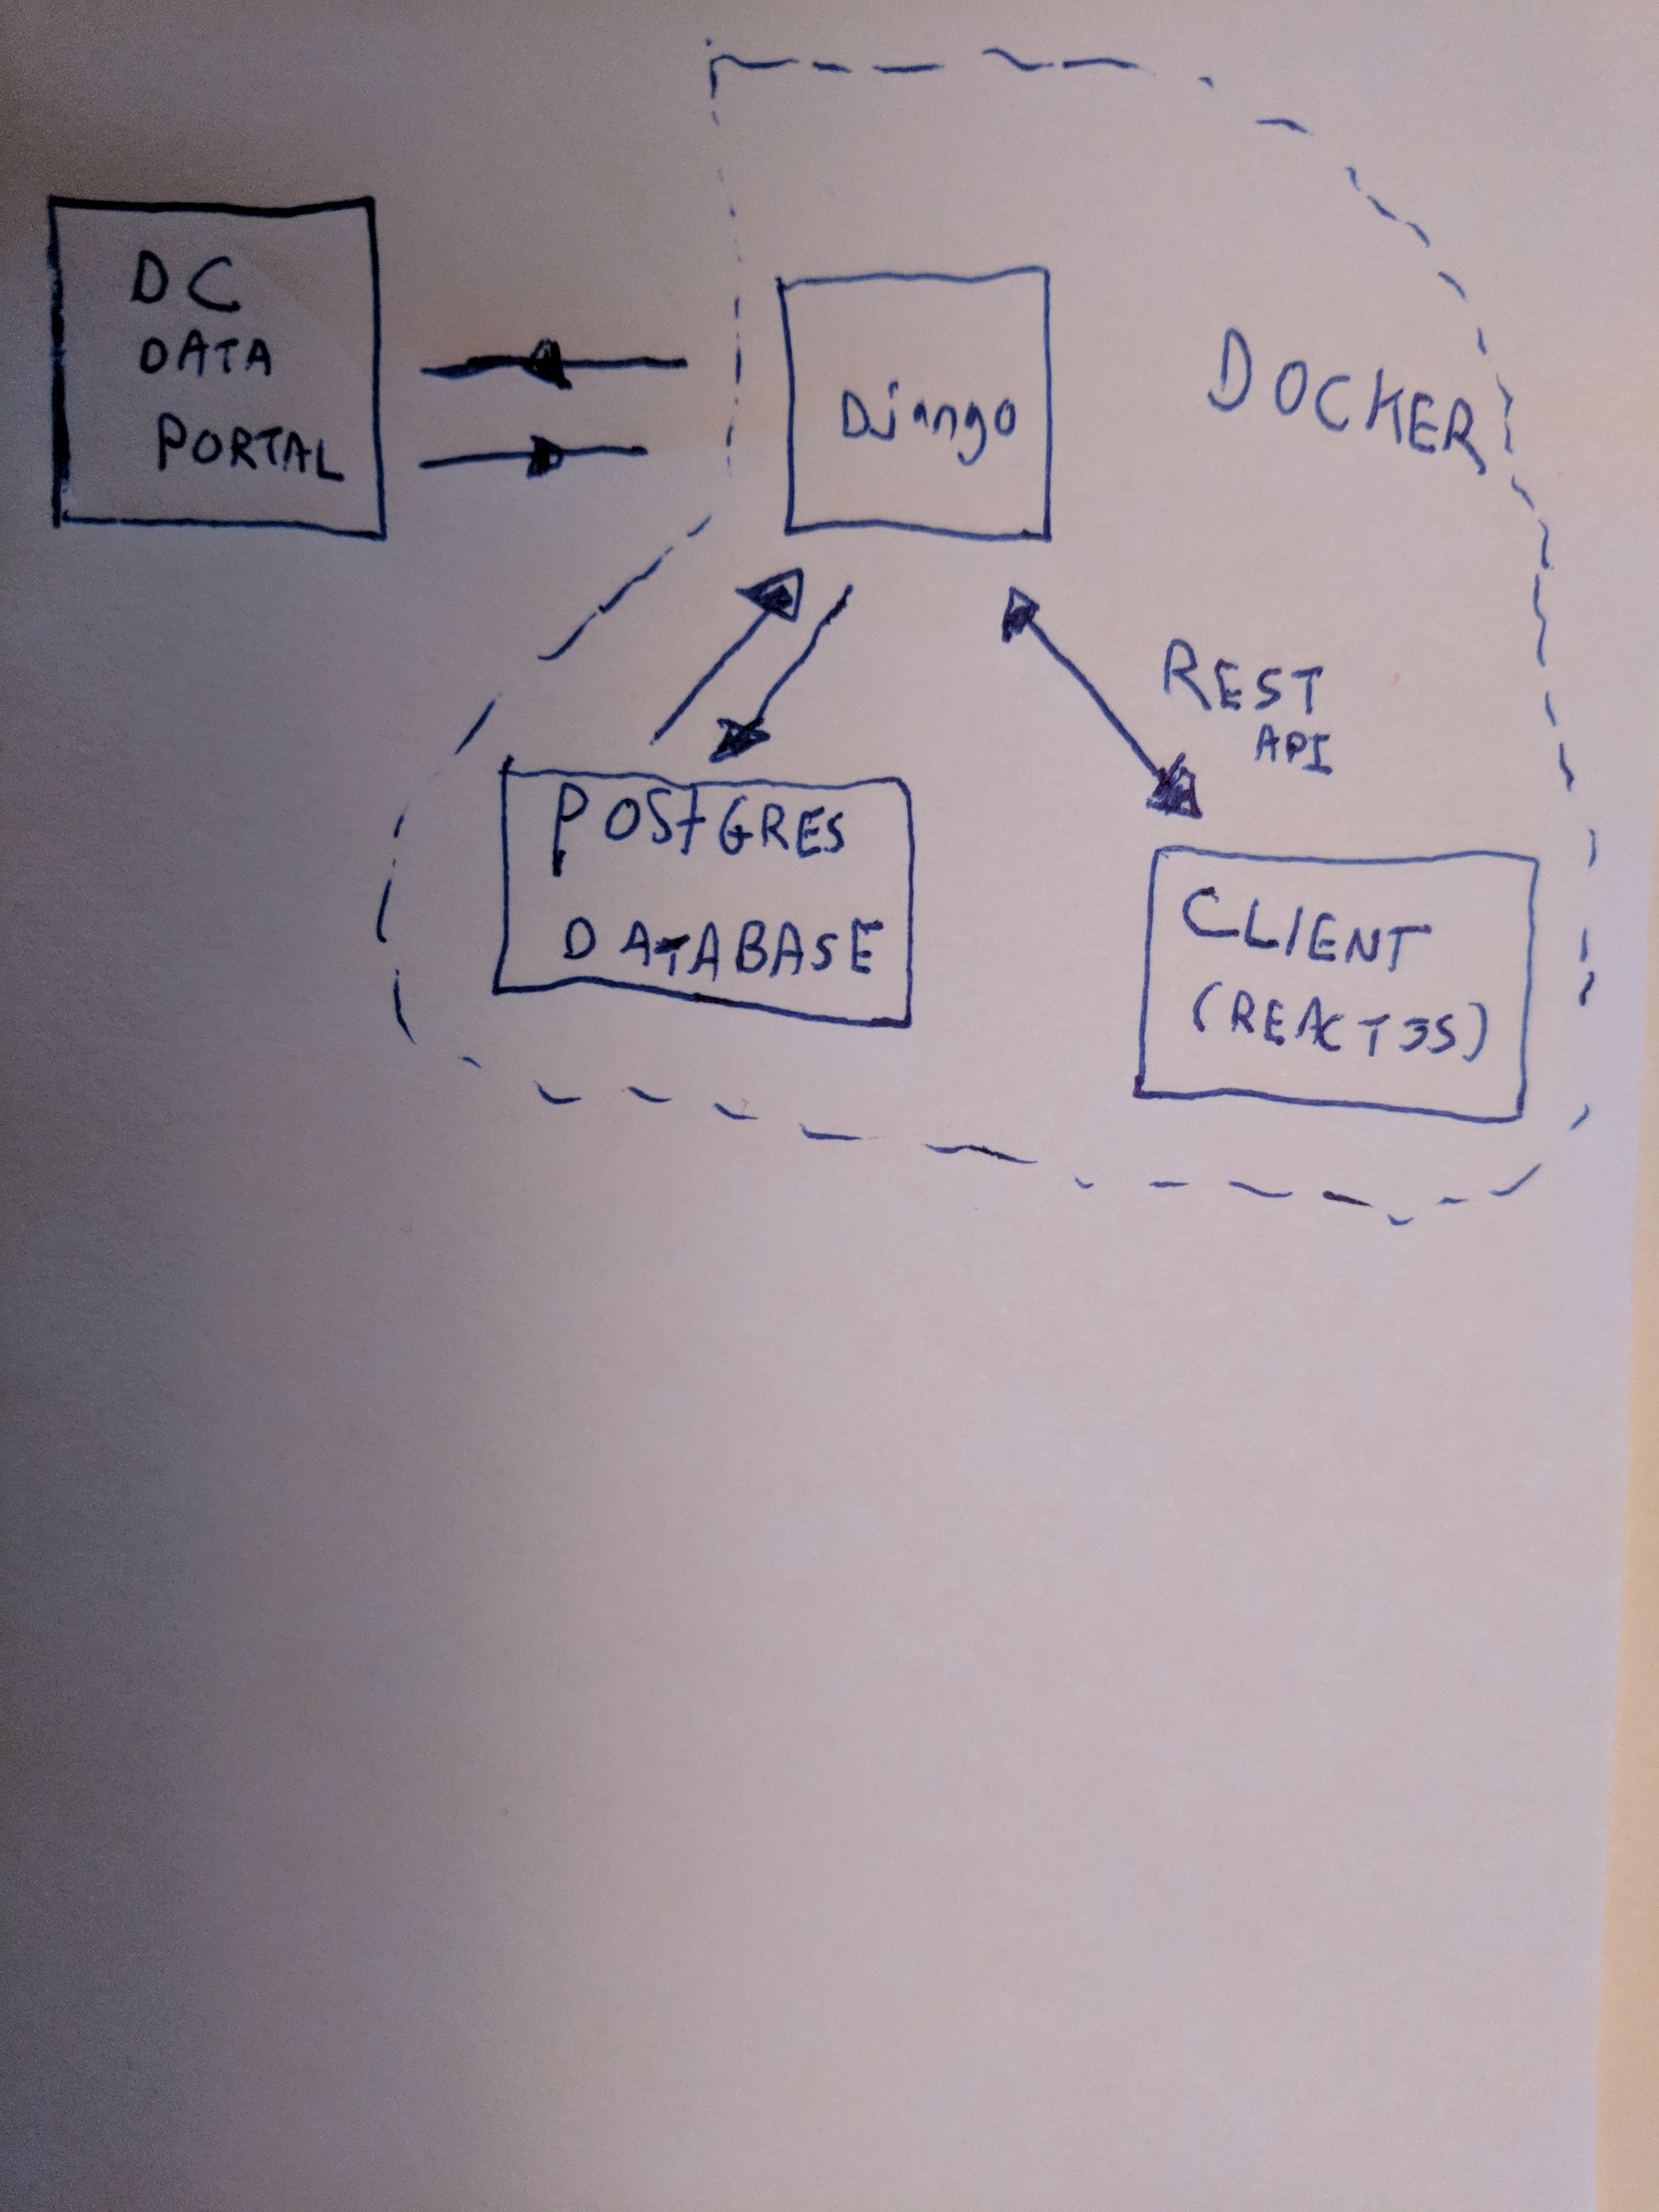 DC
DATA
PORTAL
Django
DOCKER
REST
API
POSTGRES
DATABASE
CLIENT
(REACTJS)